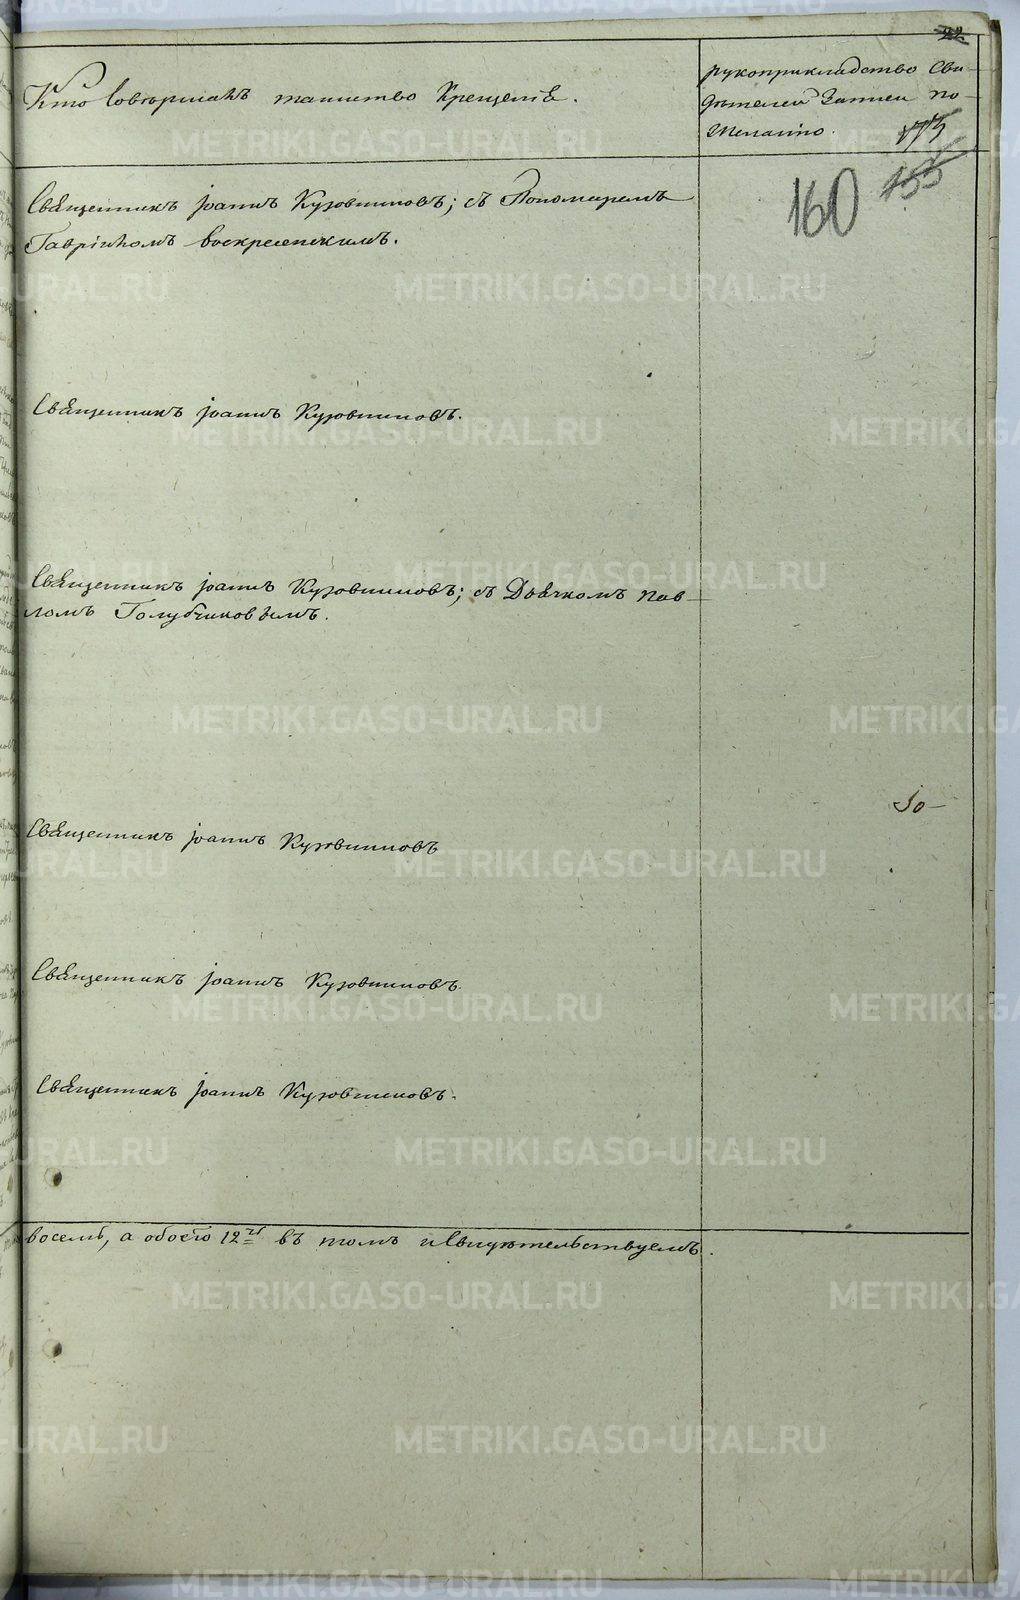 22
Кто Совершалъ таинство Крещенія.
рукоприкладство Сви-
дѣтелей Записи по
Желанію.
173
155
160
Священникъ Іоаннъ Кузовниковъ; съ Пономаремъ
Гавріиломъ Воскресенскимъ.
Священникъ Іоаннъ Кузовниковъ.
Священникъ Іоаннъ Кузовниковъ; съ Дьячкомъ Пав-
ломъ Голубчиковымъ.
Священникъ Іоаннъ Кузовниковъ
Священникъ Іоаннъ Кузовниковъ.
Священникъ Іоаннъ Кузовниковъ.
восемь, а обоего 12ть въ томъ и Свидѣтельствуемъ.
METRIKI.GASO-URAL.RU